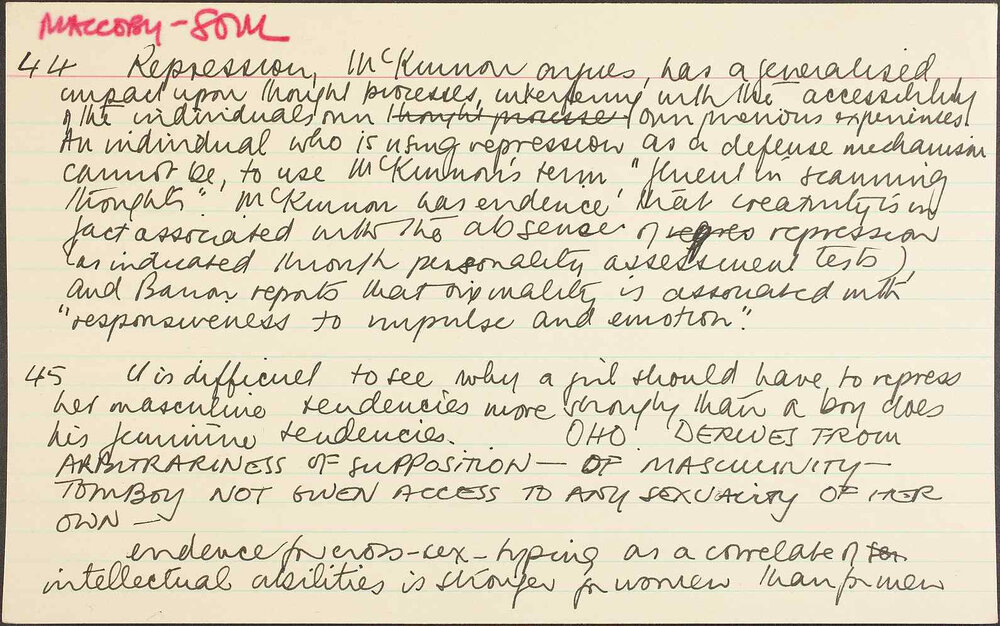 MACCOBY - SOM
44 Repression, McKinnon argues, has a generalised
impact upon thought processes, interfering with the accessibility
of the individuals own thought processe (own previous experiences)
An individual who is using repression as a defense mechanism
cannot be, to use McKinnon's term, "fluent in scanning
thoughts". McKinnon has evidence that creativity is in
fact associated with the absense of repres repression
(as indicated through personality assessment tests),
and Barron reports that originality is associated with
"responsiveness to impulse and emotion".
45 It is difficult to see why a girl should have to repress
her masculine tendencies more strongly than a boy does
his feminine tendencies. OHO DERIVES FROM
ARBITRARINESS OF SUPPOSITION — OF MASCULINITY —
TOMBOY NOT GIVEN ACCESS TO ANY SEXUALITY OF HER
OWN —
evidence for cross-sex-typing as a correlate of sex
intellectual abilities is stronger for women than for men